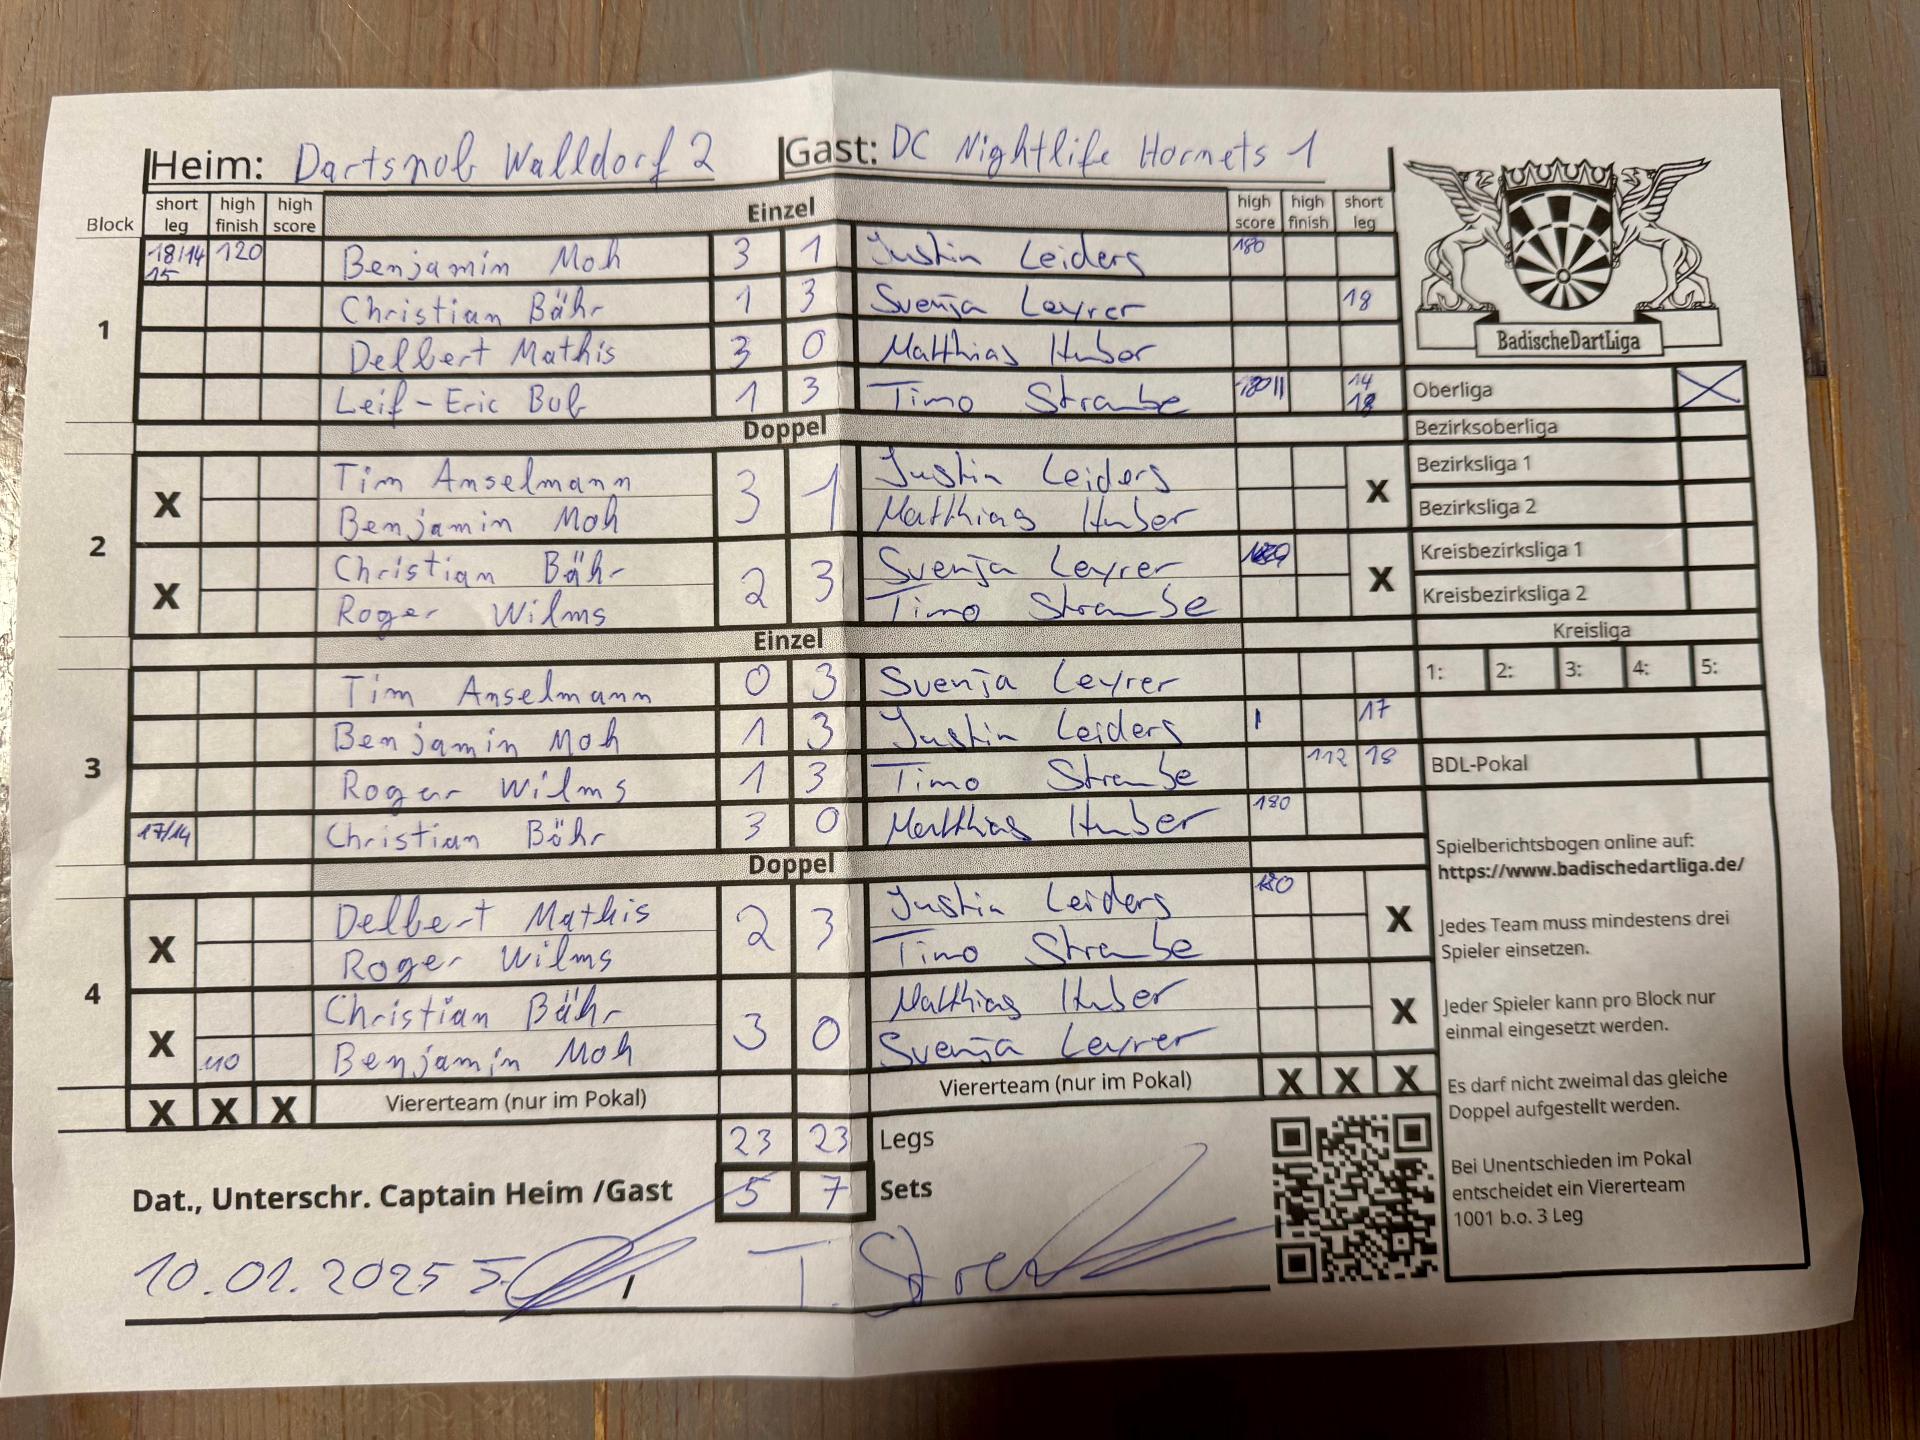 Heim: Dartsnob Walldorf 2 Gast: DC Nightlife Hornets 1
Block short leg high finish high score Einzel high score high finish short leg
1
18/14 15 120 Benjamin Moh 3 1 Justin Leiders 180
Christian Bähr 1 3 Svenja Leyrer 18
Delbert Mathis 3 0 Matthias Huber
Leif-Eric Bub 1 3 Timo Straube 180 11 14 18
Doppel
2
X Tim Anselmann 3 1 Justin Leiders X
Benjamin Moh Matthias Huber
X Christian Bähr 2 3 Svenja Leyrer X
Roger Wilms Timo Straube
Einzel
3
Tim Anselmann 0 3 Svenja Leyrer
Benjamin Moh 1 3 Justin Leiders 1 17
Roger Wilms 1 3 Timo Straube 112 18
17/14 Christian Bähr 3 0 Matthias Huber 180
Doppel
4
X Delbert Mathis 2 3 Justin Leiders 180 X
Roger Wilms Timo Straube
X Christian Bähr 3 0 Matthias Huber X
110 Benjamin Moh Svenja Leyrer
X X X Viererteam (nur im Pokal) Viererteam (nur im Pokal) X X X
23 23 Legs
Dat., Unterschr. Captain Heim /Gast 5 7 Sets
10.01.2025
BadischeDartLiga
Oberliga X
Bezirksoberliga
Bezirksliga 1
Bezirksliga 2
Kreisbezirksliga 1
Kreisbezirksliga 2
Kreisliga
1: 2: 3: 4: 5:
BDL-Pokal
Spielberichtsbogen online auf:
https://www.badischedartliga.de/
Jedes Team muss mindestens drei
Spieler einsetzen.
Jeder Spieler kann pro Block nur
einmal eingesetzt werden.
Es darf nicht zweimal das gleiche
Doppel aufgestellt werden.
Bei Unentschieden im Pokal
entscheidet ein Viererteam
1001 b.o. 3 Leg